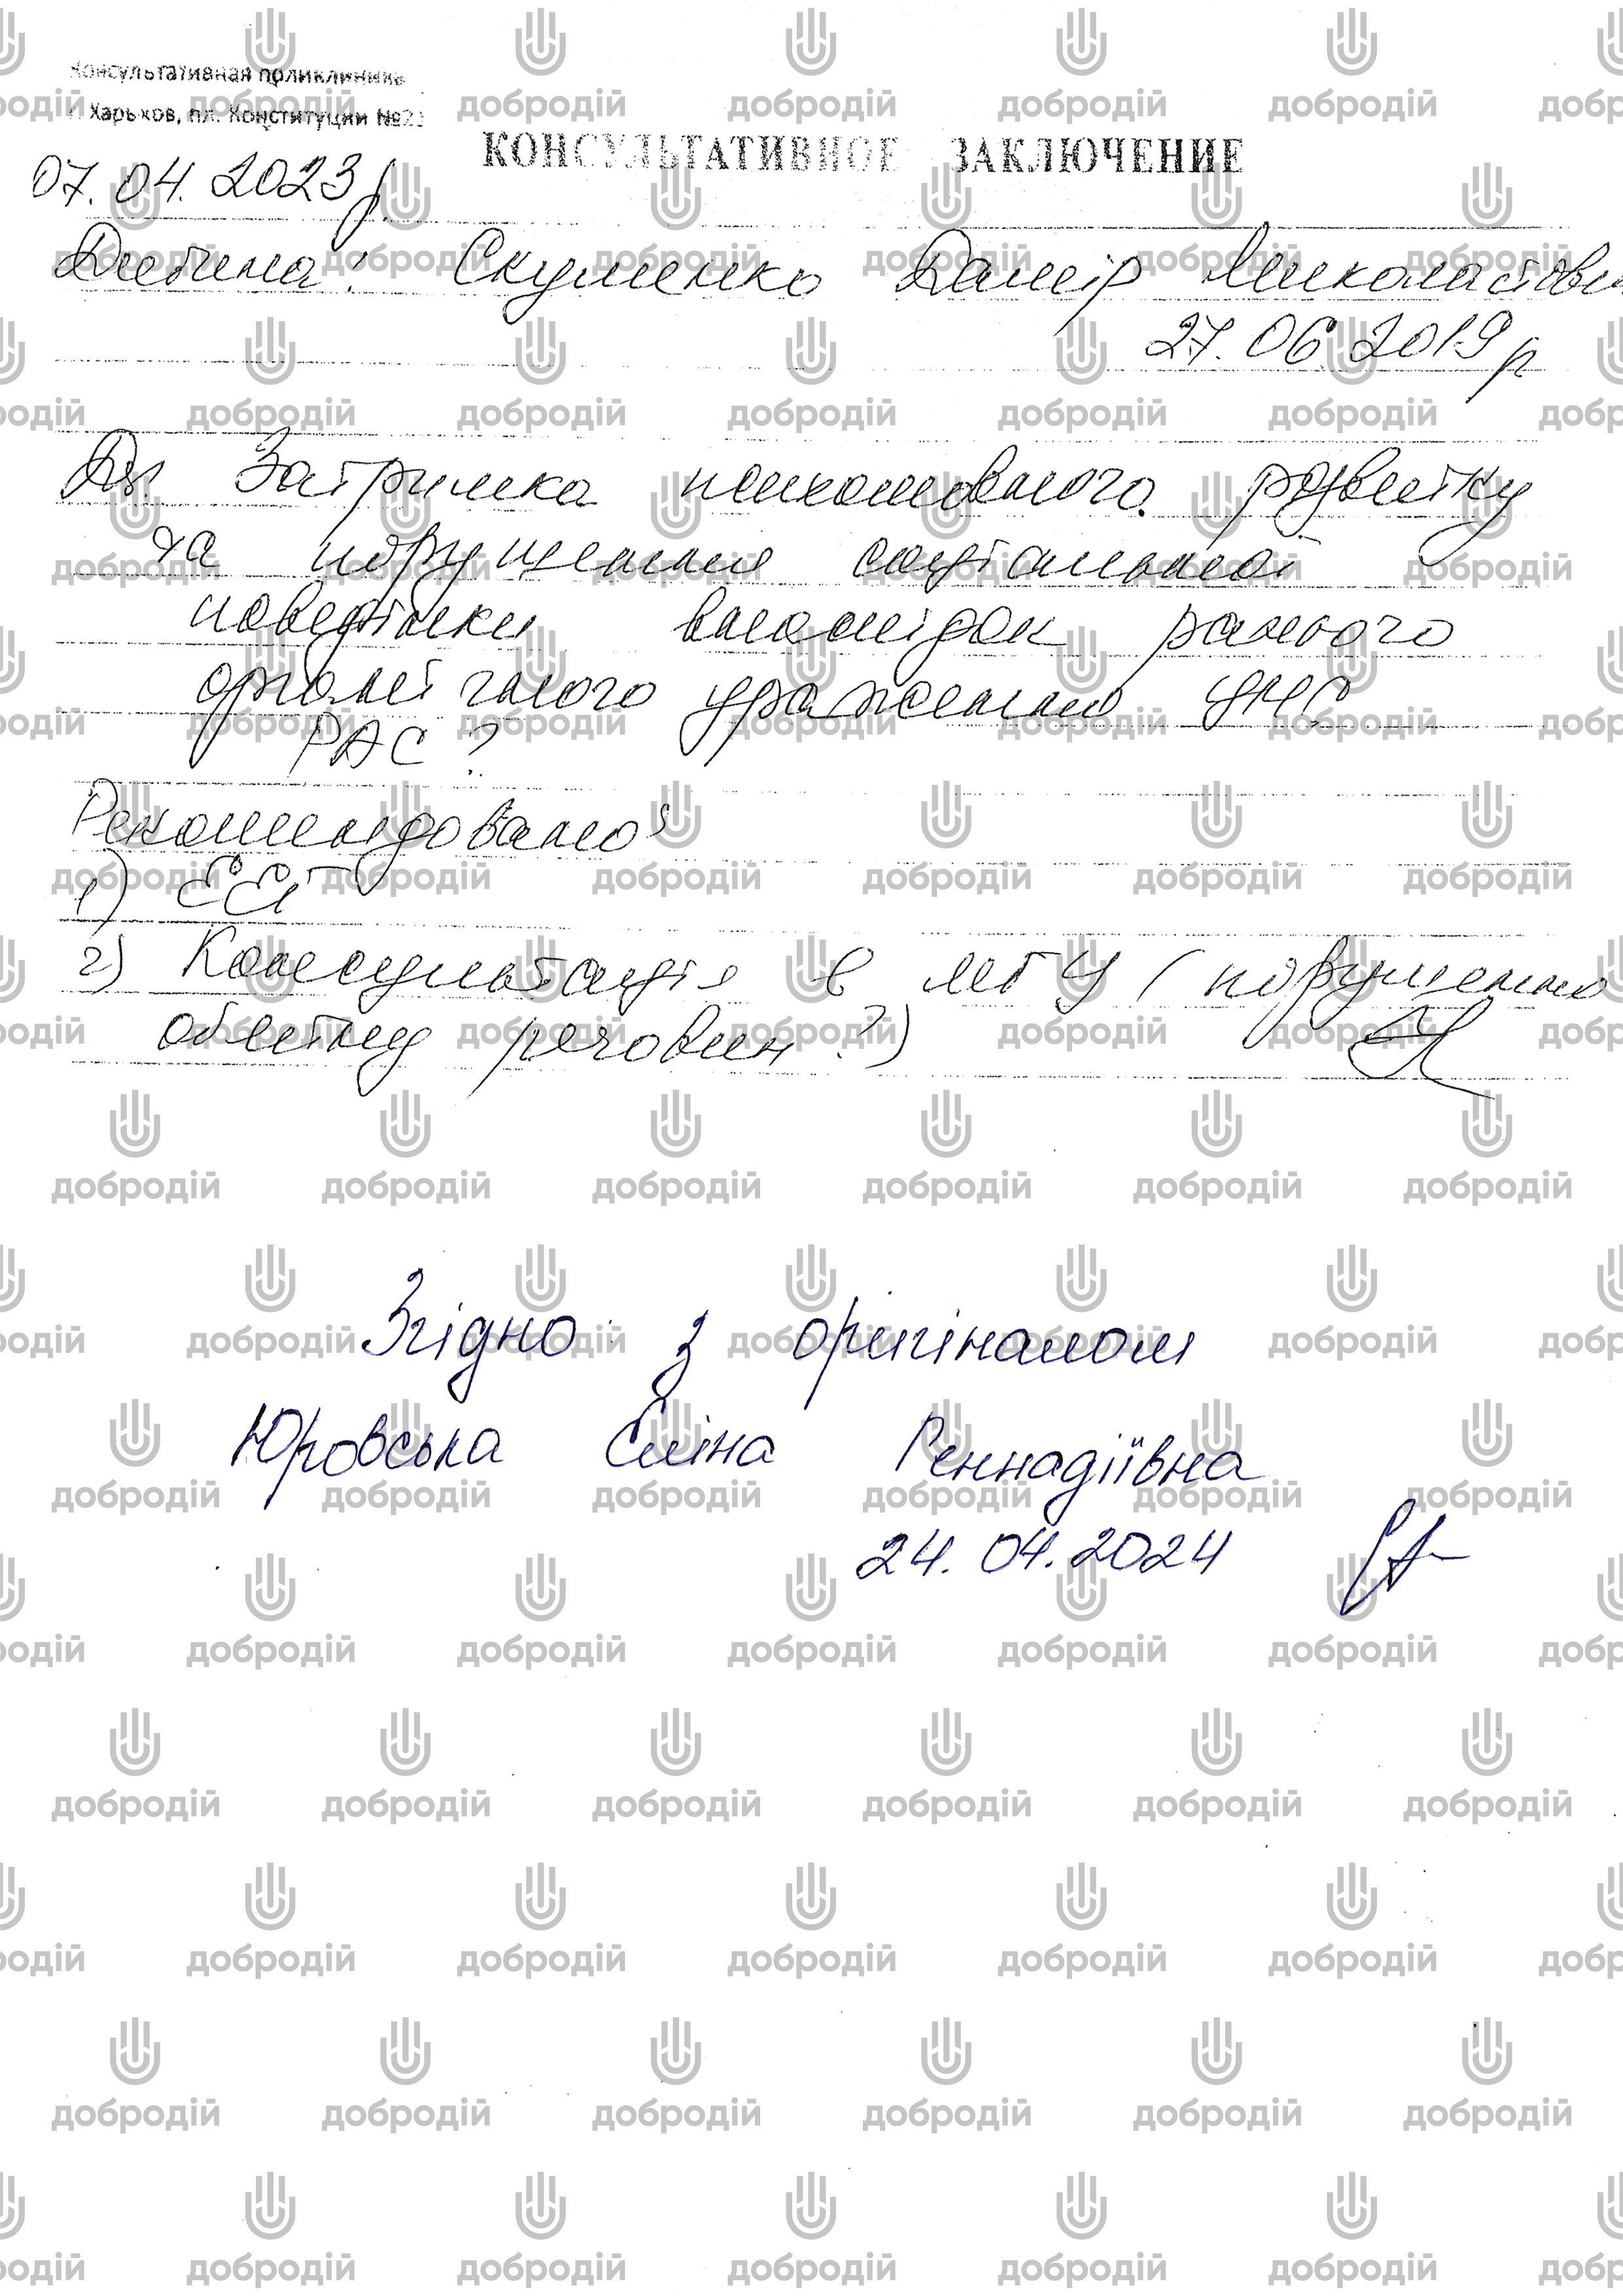 Консультативная поликлиника
г. Харьков, пл. Конституции №2
КОНСУЛЬТАТИВНОЕ ЗАКЛЮЧЕНИЕ
07.04.2023р.
Дитина: Скуменко Дамір Миколайови
27.06.2019р
Ds. Затримка психомовного розвитку
та порушення соціальної
поведінки внаслідок раннього
органічного ураження ЦНС
РАС?
Рекомендовано:
1) ЕЕГ
2) Консультація в МГЦ (порушення
обміну речовин?)
Згідно з оригіналом
Юровська Еліна Геннадіївна
24.04.2024
добродій